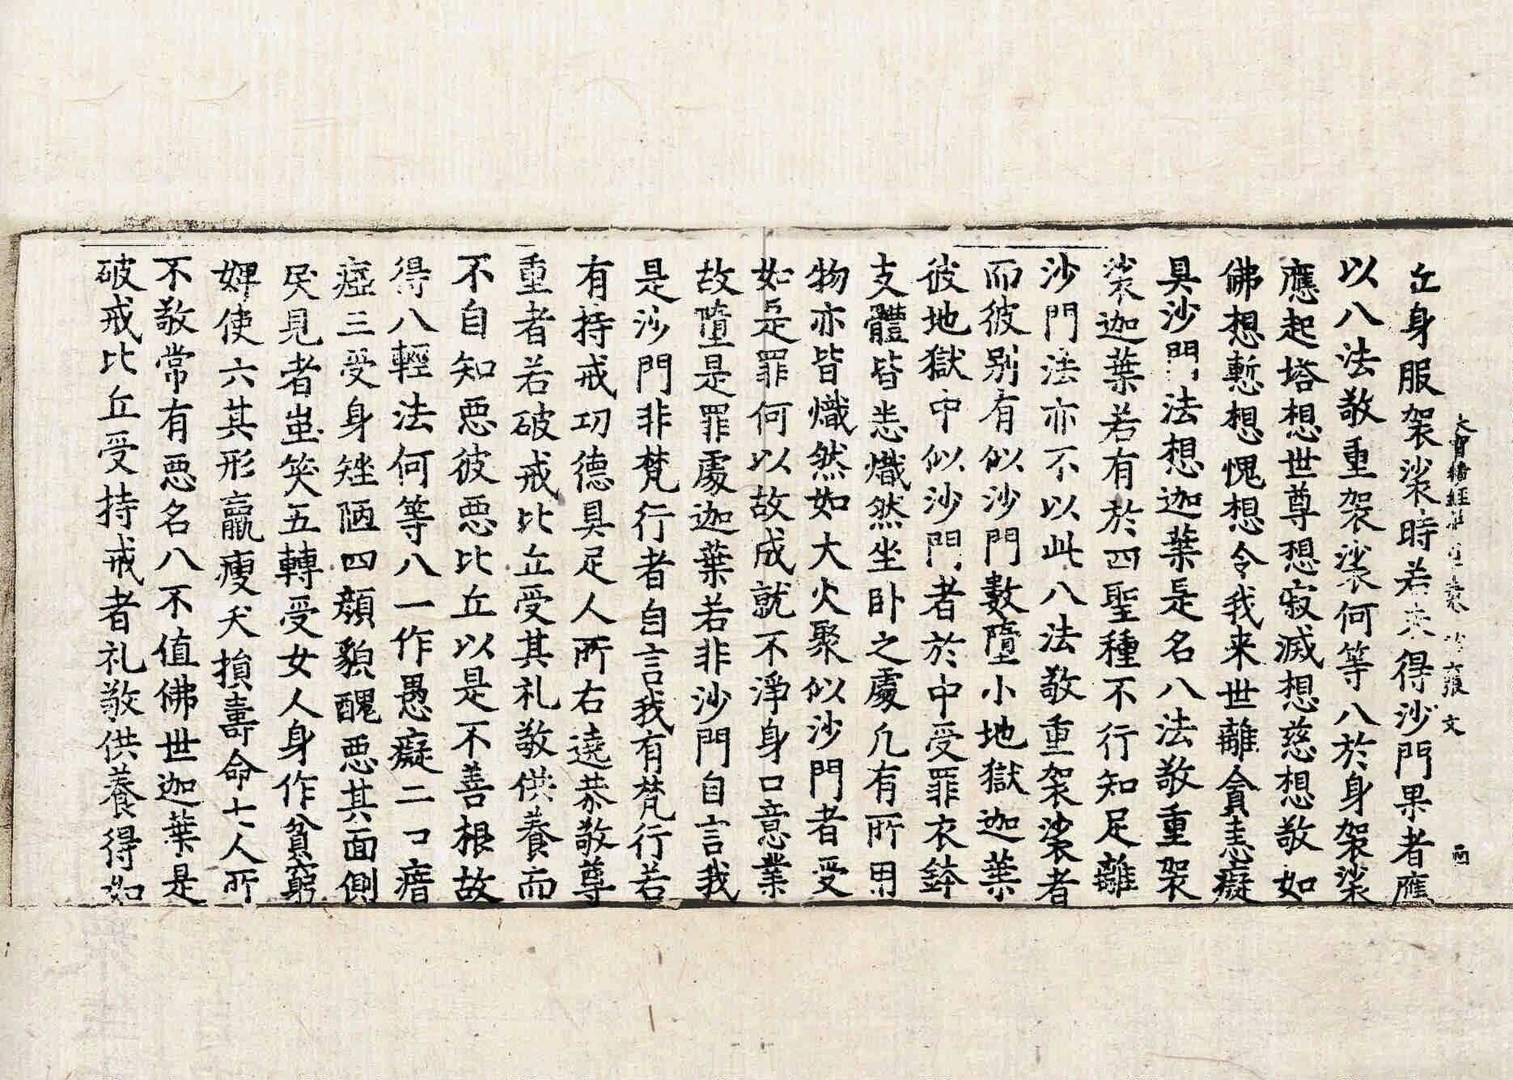 丘身服袈裟時若未得沙門果者應
以八法敬重袈裟何等八於身袈裟
應起塔想世尊想寂滅想慈想敬如
佛想慙想愧想令我来世離貪恚癡
具沙門法想迦葉是名八法敬重袈
裟迦葉若有於四聖種不行知足離
沙門法亦不以此八法敬重袈裟者
而彼别有似沙門數墮小地獄迦葉
彼地獄中似沙門者於中受罪衣鉢
支體皆悉熾然坐卧之處凡有所用
物亦皆熾然如大火聚似沙門者受
如是罪何以故成就不淨身口意業
故墮是罪處迦葉若非沙門自言我
是沙門非梵行者自言我有梵行若
有持戒功德具足人所右遶恭敬尊
重者若破戒比丘受其礼敬供養而
不自知惡彼惡比丘以是不善根故
得八輕法何等八一作愚癡二口瘖
瘂三受身矬陋四顔貌醜惡其面側
戾見者蚩笑五轉受女人身作貧窮
婢使六其形羸瘦夭損壽命七人所
不敬常有惡名八不值佛世迦葉是
破戒比丘受持戒者礼敬供養得如